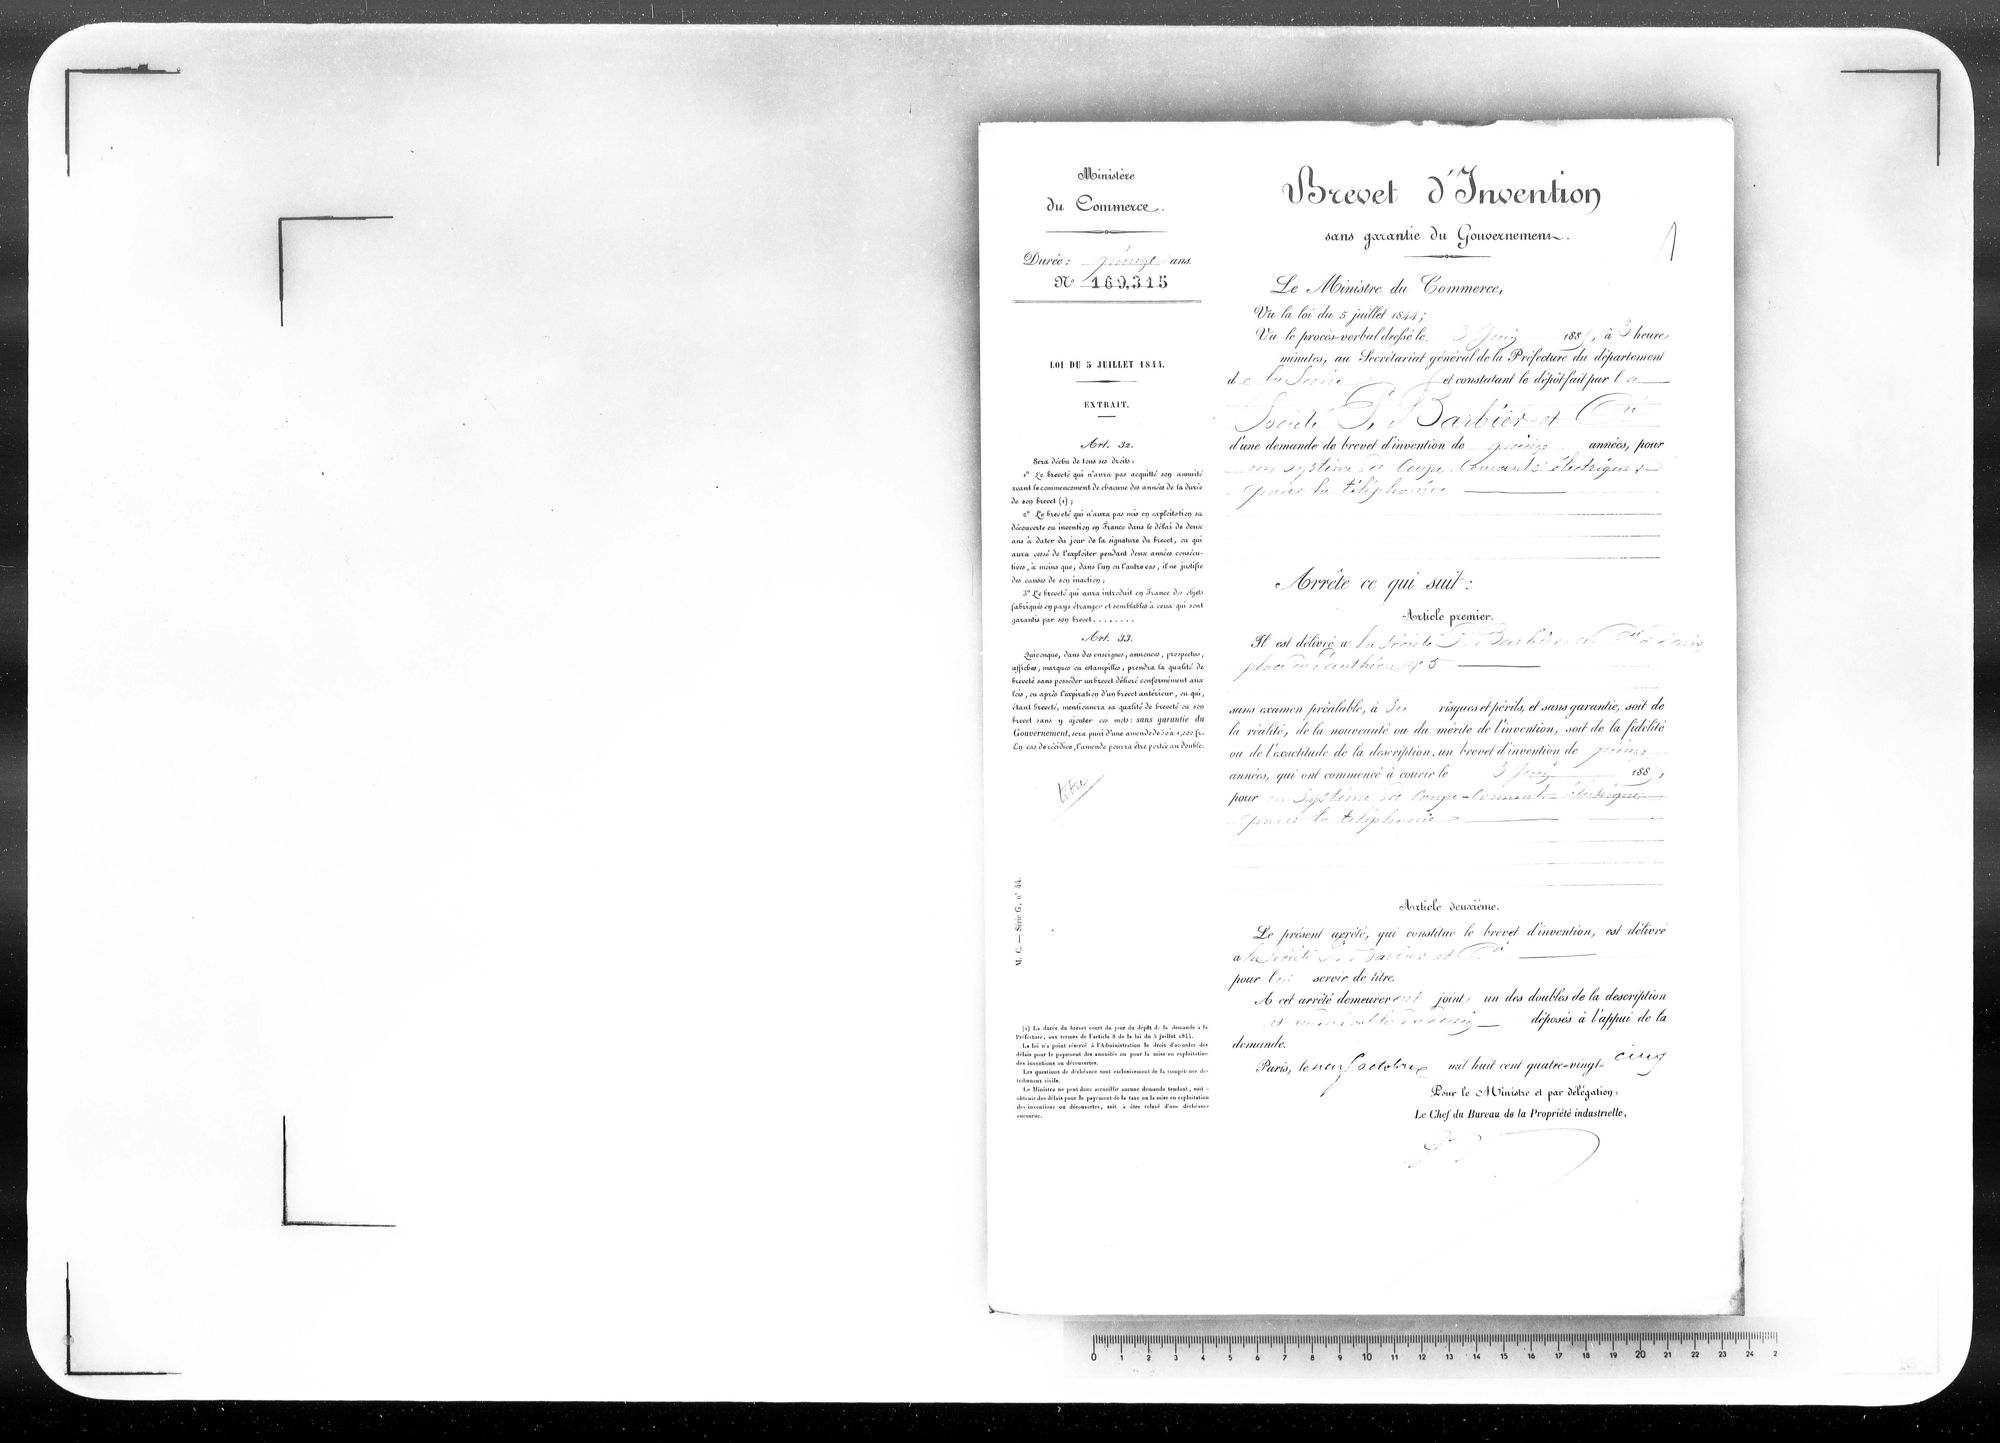 Ministère
du Commerce.
Durée : quinze ans.
N° 169,315
LOI DU 5 JUILLET 1844.
EXTRAIT.
Art. 32.
Sera déchu de tous ses droits :
1° Le breveté qui n'aura pas acquitté son annuité
avant le commencement de chacune des années de la durée
de son brevet (1) ;
2° Le breveté qui n'aura pas mis en exploitation sa
découverte ou invention en France dans le délai de deux
ans à dater du jour de la signature du brevet, ou qui
aura cessé de l'exploiter pendant deux années consécu-
tives, à moins que, dans l'un ou l'autre cas, il ne justifie
des causes de son inaction ;
3° Le breveté qui aura introduit en France des objets
fabriqués en pays étranger et semblables à ceux qui sont
garantis par son brevet........
Art. 33.
Quiconque, dans des enseignes, annonces, prospectus,
affiches, marques ou estampilles, prendra la qualité de
breveté sans posséder un brevet délivré conformément aux
lois, ou après l'expiration d'un brevet antérieur, ou qui,
étant breveté, mentionnera sa qualité de breveté ou son
brevet sans y ajouter ces mots : sans garantie du
Gouvernement, sera puni d'une amende de 50 à 1,000 fr.
En cas de récidive, l'amende pourra être portée au double.
M. C. — Série G, n° 44.
(1) La durée du brevet court du jour du dépôt de la demande à la
Préfecture, aux termes de l'article 8 de la loi du 5 juillet 1844.
La loi n'a point réservé à l'Administration le droit d'accorder des
délais pour le payement des annuités ou pour la mise en exploitation
des inventions ou découvertes.
Les questions de déchéance sont exclusivement de la compétence des
tribunaux civils.
Le Ministre ne peut donc accueillir aucune demande tendant, soit à
obtenir des délais pour le payement de la taxe ou la mise en exploitation
des inventions ou découvertes, soit à être relevé d'une déchéance
encourue.
Brevet d'Invention
sans garantie du Gouvernement.
1
Le Ministre du Commerce,
Vu la loi du 5 juillet 1844 ;
Vu le procès-verbal dressé le 3 Juin 1885, à 3 heures
minutes, au Secrétariat général de la Préfecture du département
de la Seine et constatant le dépôt fait par la
Société P. Barbier et Cie
d'une demande de brevet d'invention de quinze années, pour
un système de coupe-courants électriques
pour la téléphonie
Arrête ce qui suit :
Article premier.
Il est délivré à la Société P. Barbier et Cie à Paris
place du Panthéon n° 5
sans examen préalable, à ses risques et périls, et sans garantie, soit de
la réalité, de la nouveauté ou du mérite de l'invention, soit de la fidélité
ou de l'exactitude de la description, un brevet d'invention de quinze
années, qui ont commencé à courir le 3 Juin 1885,
pour un système de coupe-courants électriques
pour la téléphonie
Article deuxième.
Le présent arrêté, qui constitue le brevet d'invention, est délivré
à la Société P. Barbier et Cie
pour lui servir de titre.
A cet arrêté demeureront joints un des doubles de la description
et un des doubles du dessin déposés à l'appui de la
demande.
Paris, le neuf octobre mil huit cent quatre-vingt-cinq
Pour le Ministre et par délégation :
Le Chef du Bureau de la Propriété industrielle,
0 1 2 3 4 5 6 7 8 9 10 11 12 13 14 15 16 17 18 19 20 21 22 23 24 2